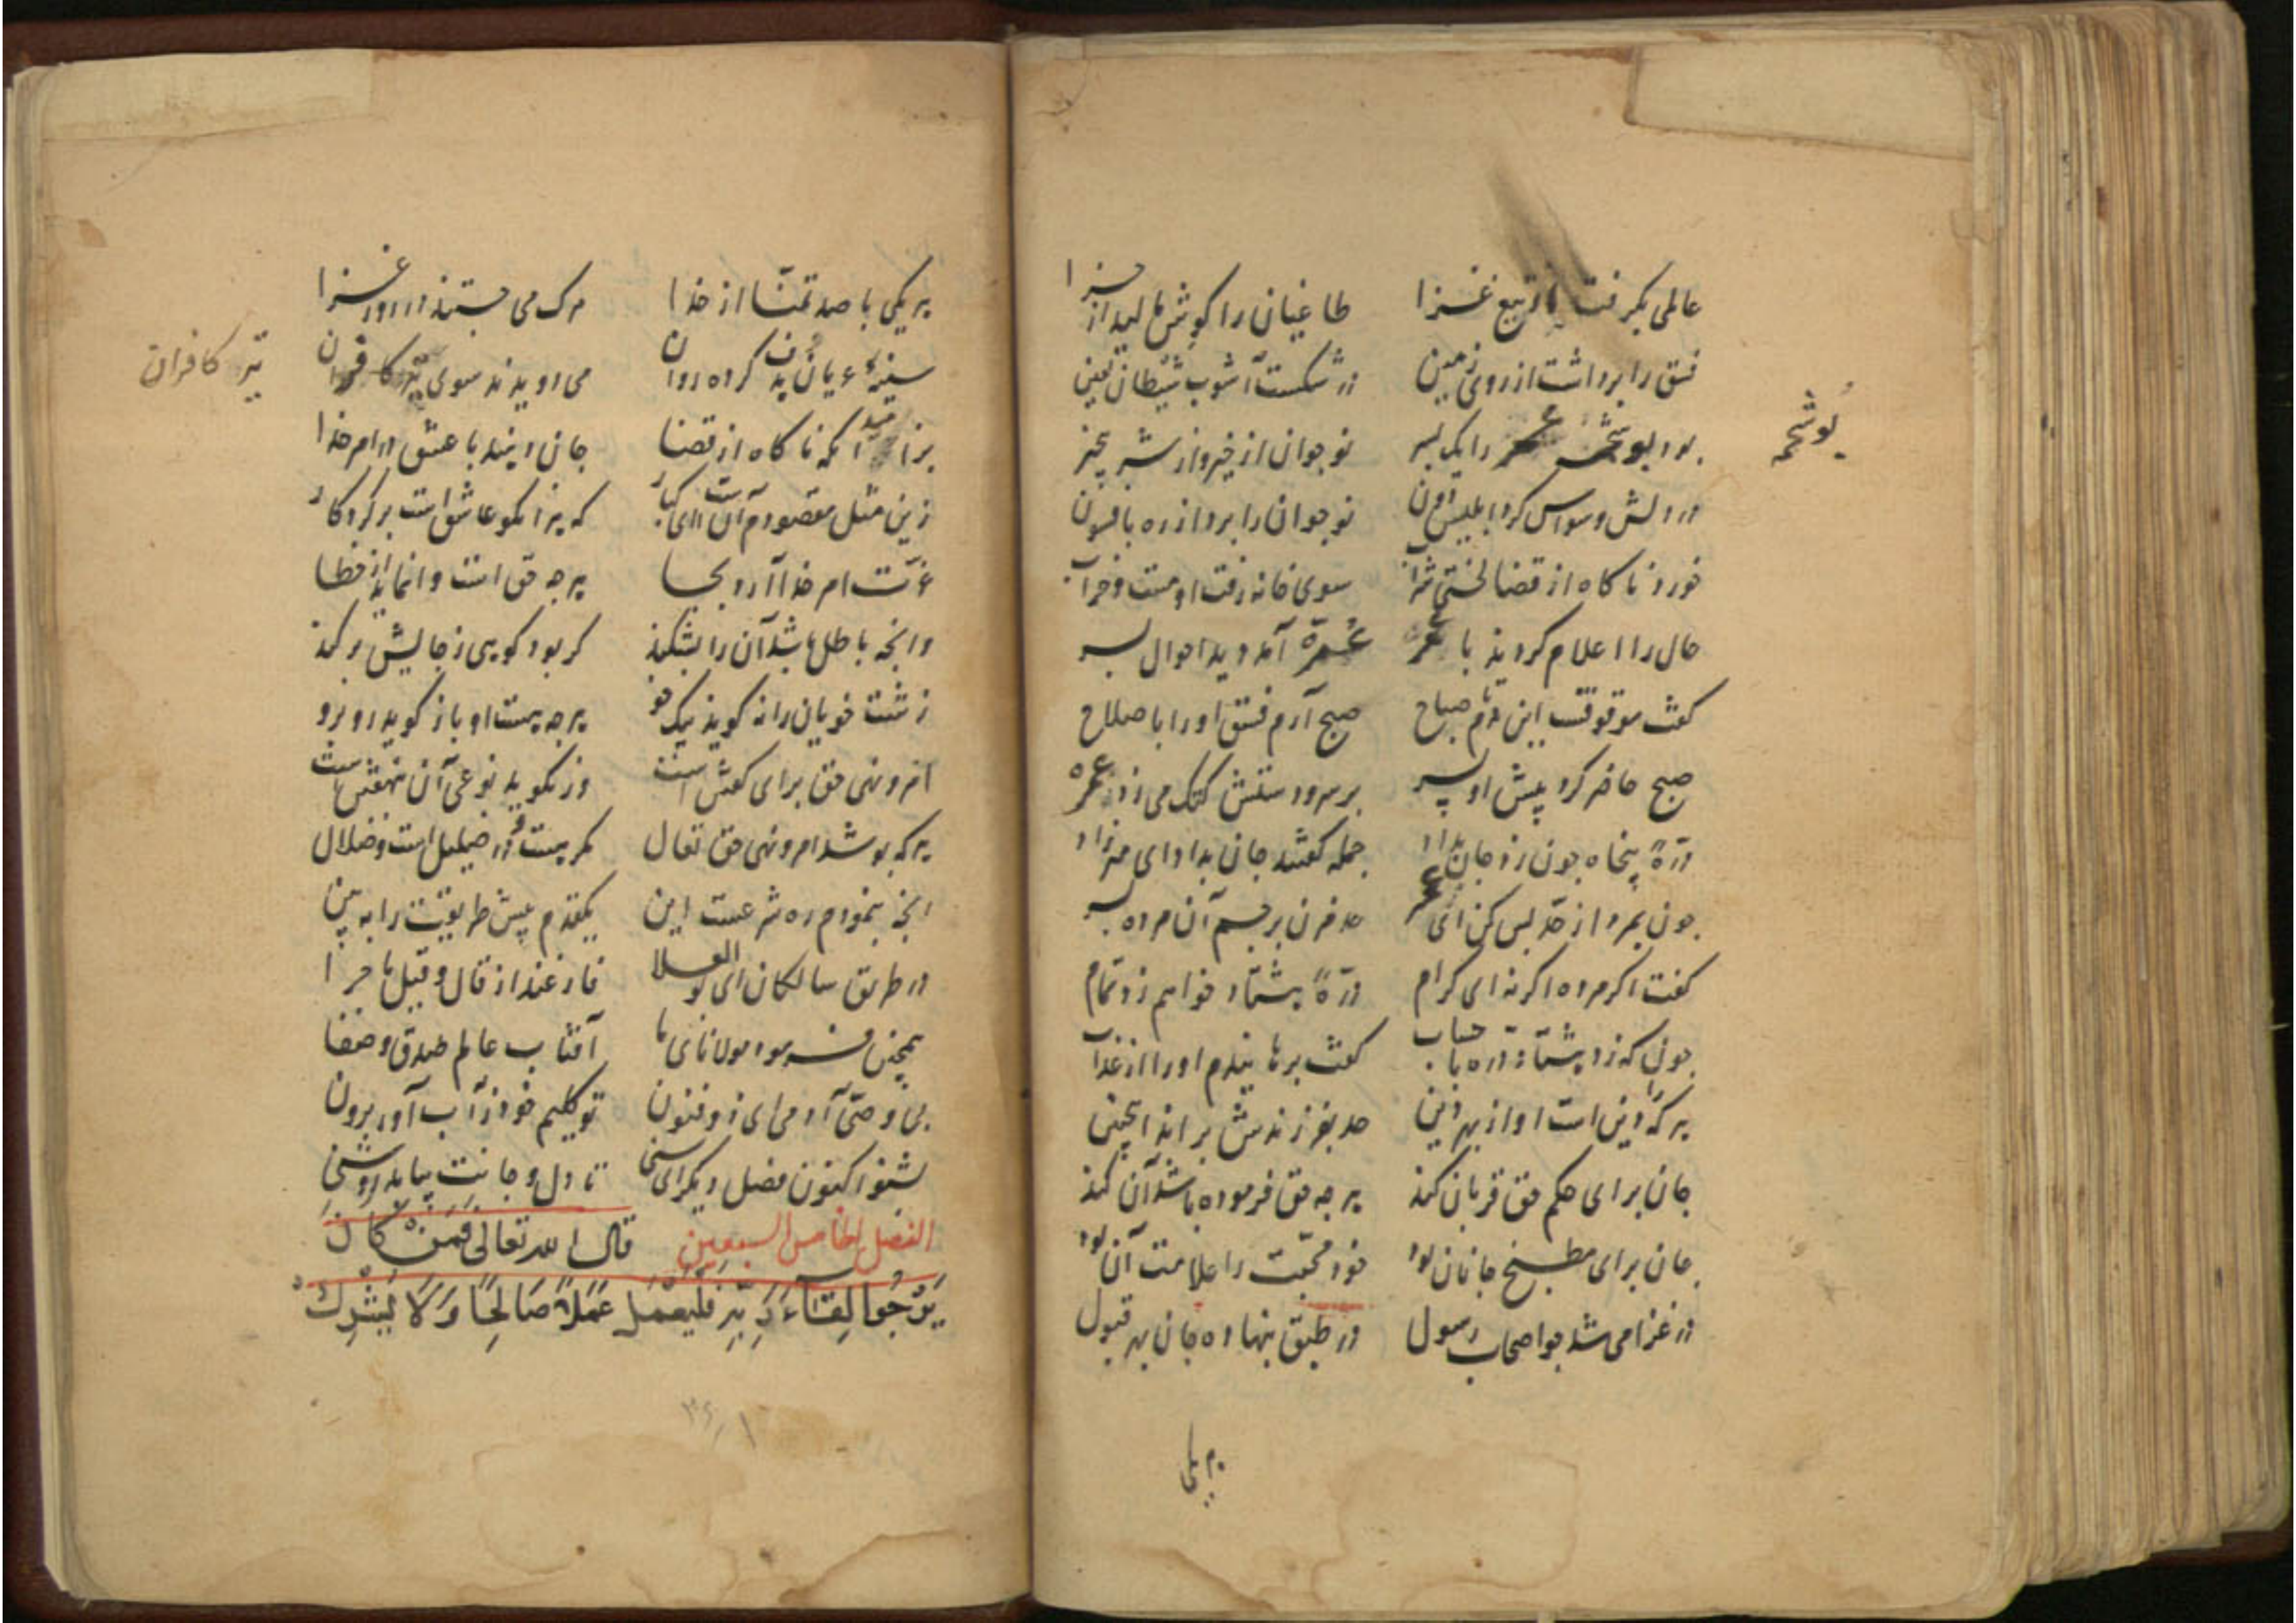 عالمی بگرفت با تیغ غزا طاغیان را گوش مالید از جزا
فسق را برداشت از روی زمین در شکست آشوب شیطان لعین
بود بوشحمه عمر را یک پسر نوجوان از خیر و از شر بیخبر
در دلش وسواس کرد ابلیس دون نوجوان را برد از ره با فسون
خورد ناکاه از قضا لختی شراب سوی خانه رفت او مست و خراب
حال را اعلام کردند با عمر عمره آمد دید احوال پسر
کفت موقوفست این دم تا صباح صبح آرم فسق او را با صلاح
صبح حاضر کرد پیش او پسر بر سر و دستش کتک می زد عمره
درّهٔ پنجاه چون زد جان بداد جمله کفتند جان بداد ای میرزاد
چون بمرد از حد بس کن ای عمر حد مزن بر جسم آن مرده پسر
کفت اکر مرده اکر نه ای کرام درّهٔ هشتاد خواهم زد تمام
چون که زد هشتاد دره با حساب کفت برهانیدم او را از عذاب
هر که را دین است او از بهر دین حد بفرزندش براند اینچنین
جان برای حکم حق قربان کند هر چه حق فرموده باشد آن کند
جان برای مطبخ جانان بود خود محبّت را علامت آن بود
در غزا می شد چو اصحاب رسول در طبق بنهاده جان بهر قبول
بوشحمه
هر یکی
هر یکی با صد تمنّا از خدا مرک می جستند در روز غزا
سینهٔ عریان هدف کرده روان می دویدند سوی تیر کافران
تیر کافران
جان دهند با عشق در امر خدا
زین مثل مقصودم آن است ای کبار که هر آنکو عاشق است بر کردکار
عزّت امر خدا آرد بجا هر چه حق است وانماید از خطا
وانچه باطل باشد آن را بشکند کر بود کوهی ز جایش بر کند
زشت خویان را نه کوید نیک خو هر چه هست او باز کوید رو برو
امر و نهی حق برای کفتن است ور نکوید نوعی آن بنهفتن است
هر که پوشد امر و نهی حق تعال کمرهست و در ضلیل است و ضلال
انچه بنمودم ره شرعست این یکقدم پیش طریقت را ببین
در طریق سالکان ای بو العلا فارغند از قال و قیل ماجرا
همچنین فرمود مولانای ما آفتاب عالم صدق و صفا
تو کلیم خود ز آب آور برون
بشنو اکنون فصل دیکر ای سنی تا دل و جانت بیابد روشنی
الفصل الخامس السبعین قال الله تعالی فمن کان
یَرْجُوا لِقَاءَ رَبِّهِ فَلْیَعْمَلْ عَمَلاً صَالِحًا وَلَا یُشْرِكْ